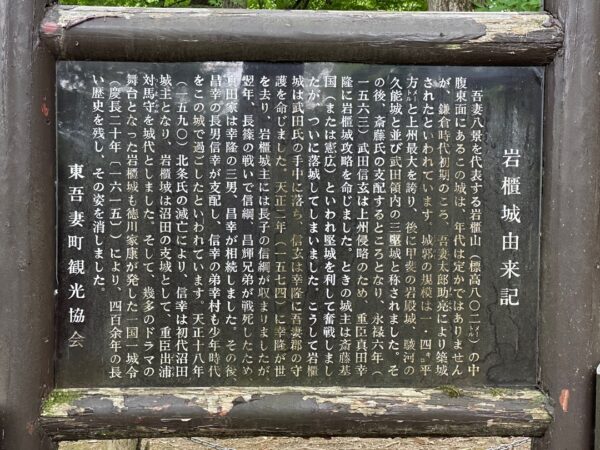 岩櫃城由来記
吾妻八景を代表する岩櫃山(標高八〇二メートル)の中
腹東面にあるこの城は、年代は定かではありません
が、鎌倉時代初期のころ、吾妻太郎助亮により築城
されたといわれています。城郭の規模は一・四キロ平
方メートルと上州最大を誇り、後に甲斐の岩殿城、駿河の
久能城と並び武田領内の三堅城と称されました。そ
の後、斎藤氏の支配するところとなり、永禄六年(
一五六三)武田信玄は上州侵略のため、重臣真田幸
隆に岩櫃城攻略を命じました。ときの城主は斎藤基
国(または憲広)といわれ堅城を利して奮戦しまし
たが、ついに落城してしまいました。こうして岩櫃
城は武田氏の手中に落ち、信玄は幸隆に吾妻郡の守
護を命じました。天正二年(一五七四)に幸隆が世
を去り、岩櫃城主には長子の信綱が収まりましたが、
翌年、長篠の戦いで信綱、昌輝兄弟が戦死したため
真田家は幸隆の三男、昌幸が相続しました。その後、
昌幸の長男信幸が支配し、信幸の弟幸村も少年時代
をこの城で過ごしたといわれています。天正十八年
(一五九〇)北条氏の滅亡により、信幸は初代沼田
城主となり、岩櫃城は沼田の支城として、重臣出浦
対馬守を城代としました。そして、幾多のドラマの
舞台となった岩櫃城も徳川家康が発した一国一城令
(慶長二十年〔一六一五〕)により、四百余年の長
い歴史を残し、その姿を消しました。
東吾妻町観光協会